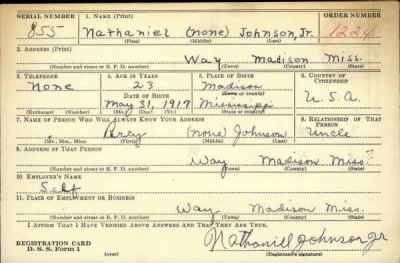 SERIAL NUMBER 1. NAME (Print) ORDER NUMBER
855 Nathaniel (none) Johnson, Jr. 1224
(First) (Middle) (Last)
2. ADDRESS (Print)
Way Madison Miss.
(Number and street or R. F. D. number) (Town) (County) (State)
3. TELEPHONE 4. AGE IN YEARS 5. PLACE OF BIRTH 6. COUNTRY OF CITIZENSHIP
None 23 Madison
DATE OF BIRTH (Town or county)
May 31, 1917 Mississippi U.S.A.
(Exchange) (Number) (Mo.) (Day) (Yr.) (State or country)
7. NAME OF PERSON WHO WILL ALWAYS KNOW YOUR ADDRESS 8. RELATIONSHIP OF THAT PERSON
Percy (none) Johnson Uncle
(Mr., Mrs., Miss) (First) (Middle) (Last)
9. ADDRESS OF THAT PERSON
Way Madison Miss.
(Number and street or R. F. D. number) (Town) (County) (State)
10. EMPLOYER'S NAME
Self
11. PLACE OF EMPLOYMENT OR BUSINESS
Way Madison Miss.
(Number and street or R. F. D. number) (Town) (County) (State)
I AFFIRM THAT I HAVE VERIFIED ABOVE ANSWERS AND THAT THEY ARE TRUE.
REGISTRATION CARD Nathaniell Johnson Jr
D. S. S. Form 1 (over) (Registrant's signature)